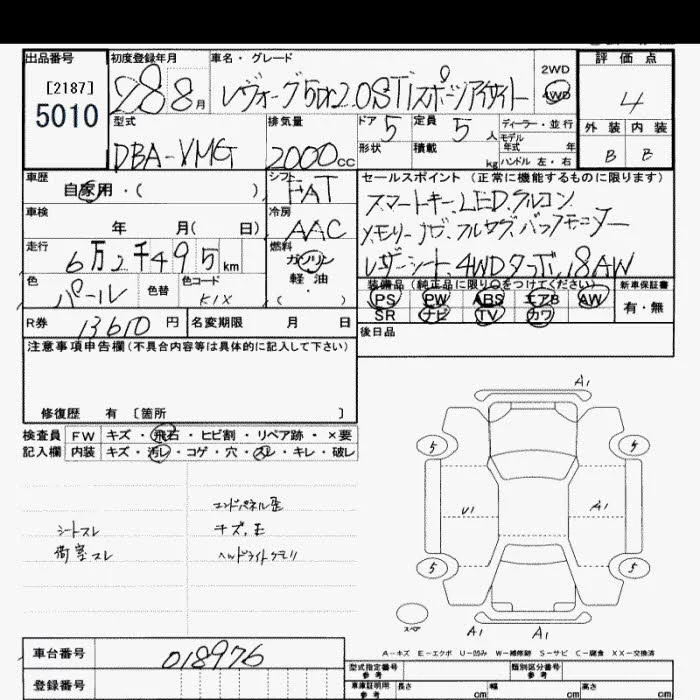 出品番号 初度登録年月 車名・グレード 評価点
[2187]
5010
28 8月 レヴォーグ 5D 2.0STI スポーツアイサイト 2WD 4WD 4
型式 排気量 ドア 5 定員 5人 ディーラー・並行 外装 内装
DBA-VMG 2000cc 形状 積載 kg モデル年式 年 ハンドル 左・右 B B
車歴 自家用・( ) シフト FAT セールスポイント (正常に機能するものに限ります)
車検 年 月( 日) 冷房 AAC スマートキー、LED、クルコン
メモリーナビ、フルセグ、バックモニター
走行 6万2千495km 燃料 ガソリン 軽・油 ( ) レザーシート、4WDターボ、18AW
色 パール 色替 色コード K1X
装備品(純正品に限り○をつけてください) 新車保証書
PS PW ABS エアB AW 有・無
SR ナビ TV カワ
R券 13610円 名変期限 月 日 後日品
注意事項申告欄(不具合内容等は具体的に記入して下さい)
修復歴 有 [箇所 ]
検査員 FW キズ・飛石・ヒビ割・リペア跡・×要
記入欄 内装 キズ・汚レ・コゲ・穴・スレ・キレ・破レ
A1
5 5
U1 A1
エンドパネル歪
シートスレ キズ、E
荷室スレ ヘッドライトクモリ
5 5
スペア
A1 A1
A-キズ E-エクボ U-凹み W-補修跡 S-サビ C-腐食 XX-交換済
車台番号 018976
型式指定番号 参考 類別区分番号 参考
登録番号 車庫証明用 参考 長さ cm 幅 cm 高さ cm